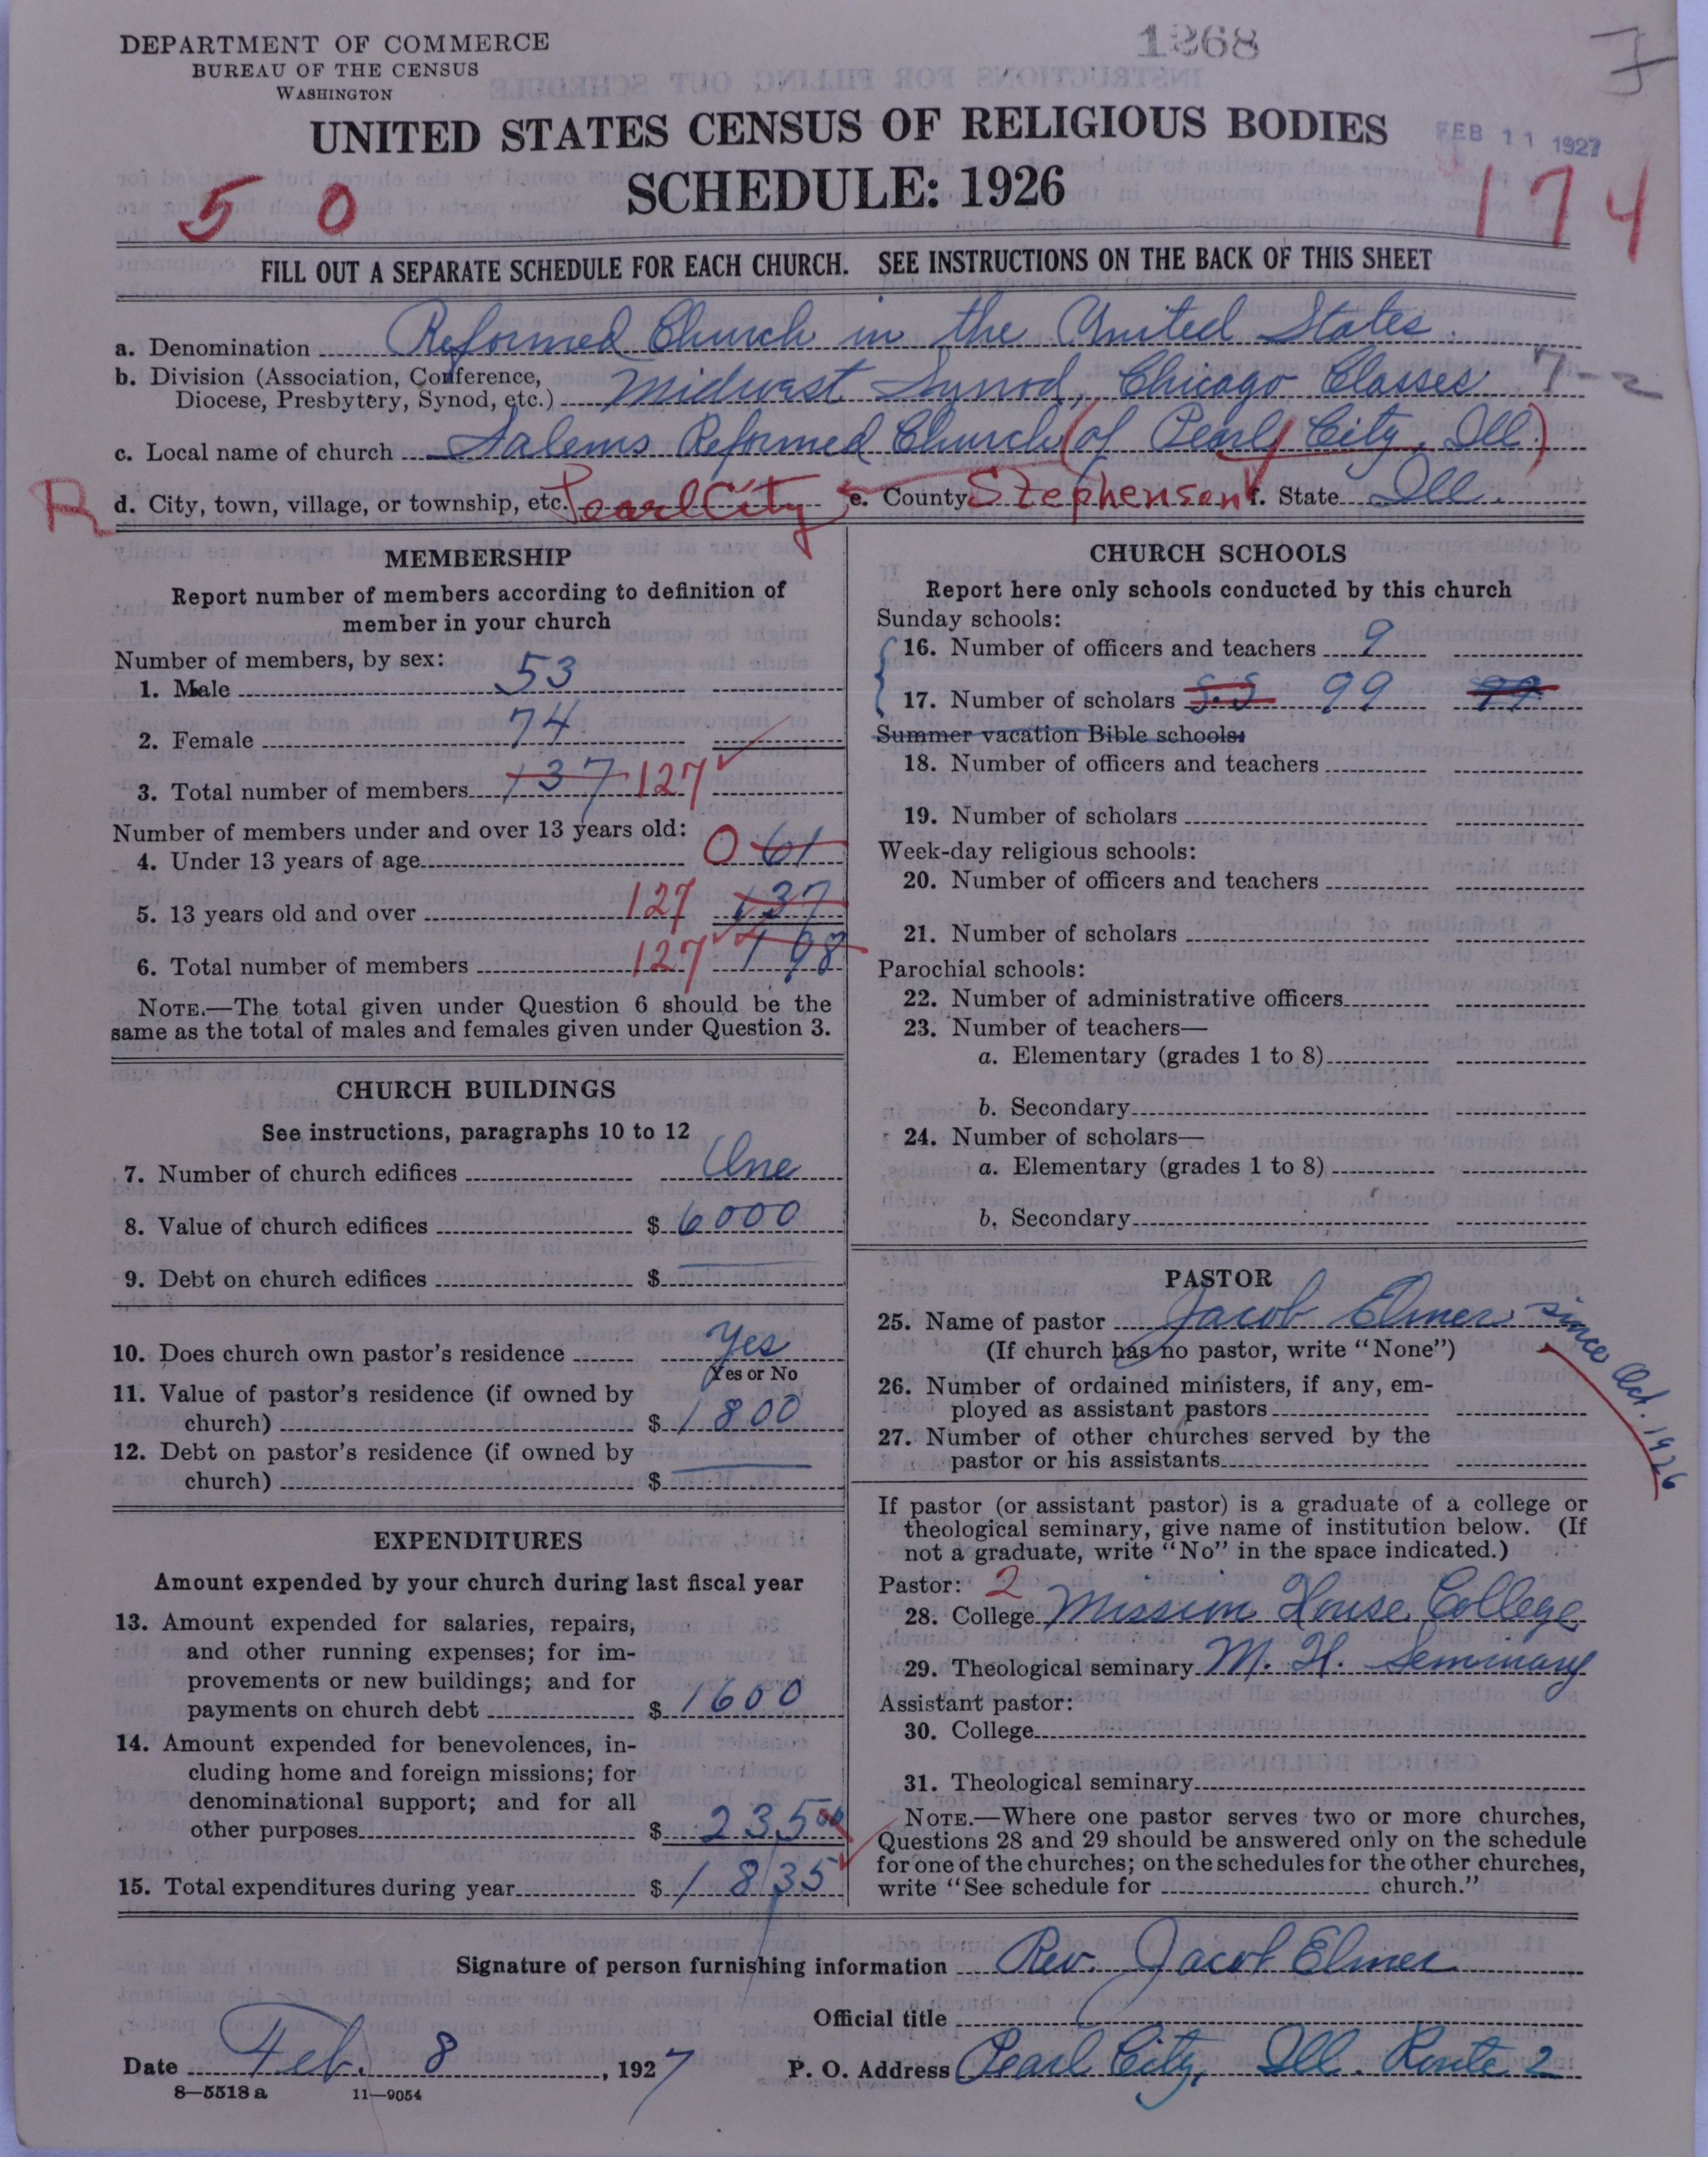 DEPARTMENT OF COMMERCE
BUREAU OF THE CENSUS
WASHINGTON
1268
UNITED STATES CENSUS OF RELIGIOUS BODIES
FEB 11 1927
SCHEDULE: 1926
5 0
174
FILL OUT A SEPARATE SCHEDULE FOR EACH CHURCH. SEE INSTRUCTIONS ON THE BACK OF THIS SHEET
a. Denomination Reformed Church in the United States
b. Division (Association, Conference, Diocese, Presbytery, Synod, etc.) Midwest Synod, Chicago Classes 7-2
c. Local name of church Salems Reformed Church (of Pearl City, Ill.)
R d. City, town, village, or township, etc. Pearl City e. County Stephenson f. State Ill.
MEMBERSHIP
Report number of members according to definition of
member in your church
Number of members, by sex:
1. Male 53
2. Female 74
3. Total number of members 137 127
Number of members under and over 13 years old:
4. Under 13 years of age 0 61
5. 13 years old and over 127 137
6. Total number of members 127 198
NOTE.—The total given under Question 6 should be the
same as the total of males and females given under Question 3.
CHURCH BUILDINGS
See instructions, paragraphs 10 to 12
7. Number of church edifices One
8. Value of church edifices $ 6000
9. Debt on church edifices $
10. Does church own pastor's residence Yes
Yes or No
11. Value of pastor's residence (if owned by
church) $ 1800
12. Debt on pastor's residence (if owned by
church) $
EXPENDITURES
Amount expended by your church during last fiscal year
13. Amount expended for salaries, repairs,
and other running expenses; for im-
provements or new buildings; and for
payments on church debt $ 1600
14. Amount expended for benevolences, in-
cluding home and foreign missions; for
denominational support; and for all
other purposes $ 235 00
15. Total expenditures during year $ 1835
CHURCH SCHOOLS
Report here only schools conducted by this church
Sunday schools:
16. Number of officers and teachers 9
17. Number of scholars S.S 99 99
Summer vacation Bible schools:
18. Number of officers and teachers
19. Number of scholars
Week-day religious schools:
20. Number of officers and teachers
21. Number of scholars
Parochial schools:
22. Number of administrative officers
23. Number of teachers—
a. Elementary (grades 1 to 8)
b. Secondary
24. Number of scholars—
a. Elementary (grades 1 to 8)
b. Secondary
PASTOR
25. Name of pastor Jacob Elmer, since Oct. 1926
(If church has no pastor, write "None")
26. Number of ordained ministers, if any, em-
ployed as assistant pastors
27. Number of other churches served by the
pastor or his assistants
If pastor (or assistant pastor) is a graduate of a college or
theological seminary, give name of institution below. (If
not a graduate, write "No" in the space indicated.)
Pastor: 2
28. College Mission House College
29. Theological seminary M. H. Seminary
Assistant pastor:
30. College
31. Theological seminary
NOTE.—Where one pastor serves two or more churches,
Questions 28 and 29 should be answered only on the schedule
for one of the churches; on the schedules for the other churches,
write "See schedule for church."
Signature of person furnishing information Rev. Jacob Elmer
Official title
Date Feb. 8, 1927 P. O. Address Pearl City, Ill. Route 2
8—5518 a 11—9054